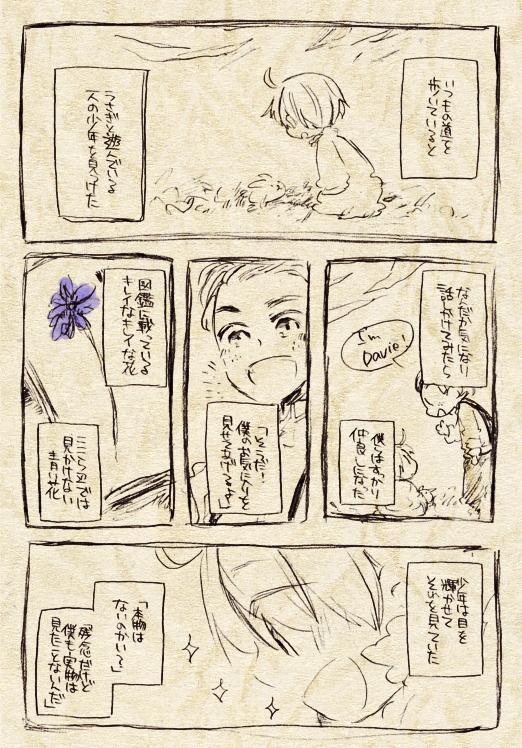 いつもの道を
歩いていると
うさぎと遊んでいる
一人の少年を見つけた
なんだか気になり
話かけてみたら
I'm
Davie!
僕らはすっかり
仲良しになった
「そうだ!
僕のお気に入りを
見せてあげるよ」
図鑑に載っている
キレイなキレイな花
ここら辺では
見かけない
青い花
少年は目を
輝かせて
それを見ていた
「本物は
ないのかい?」
「残念だけど
僕も実物は
見たことないんだ」